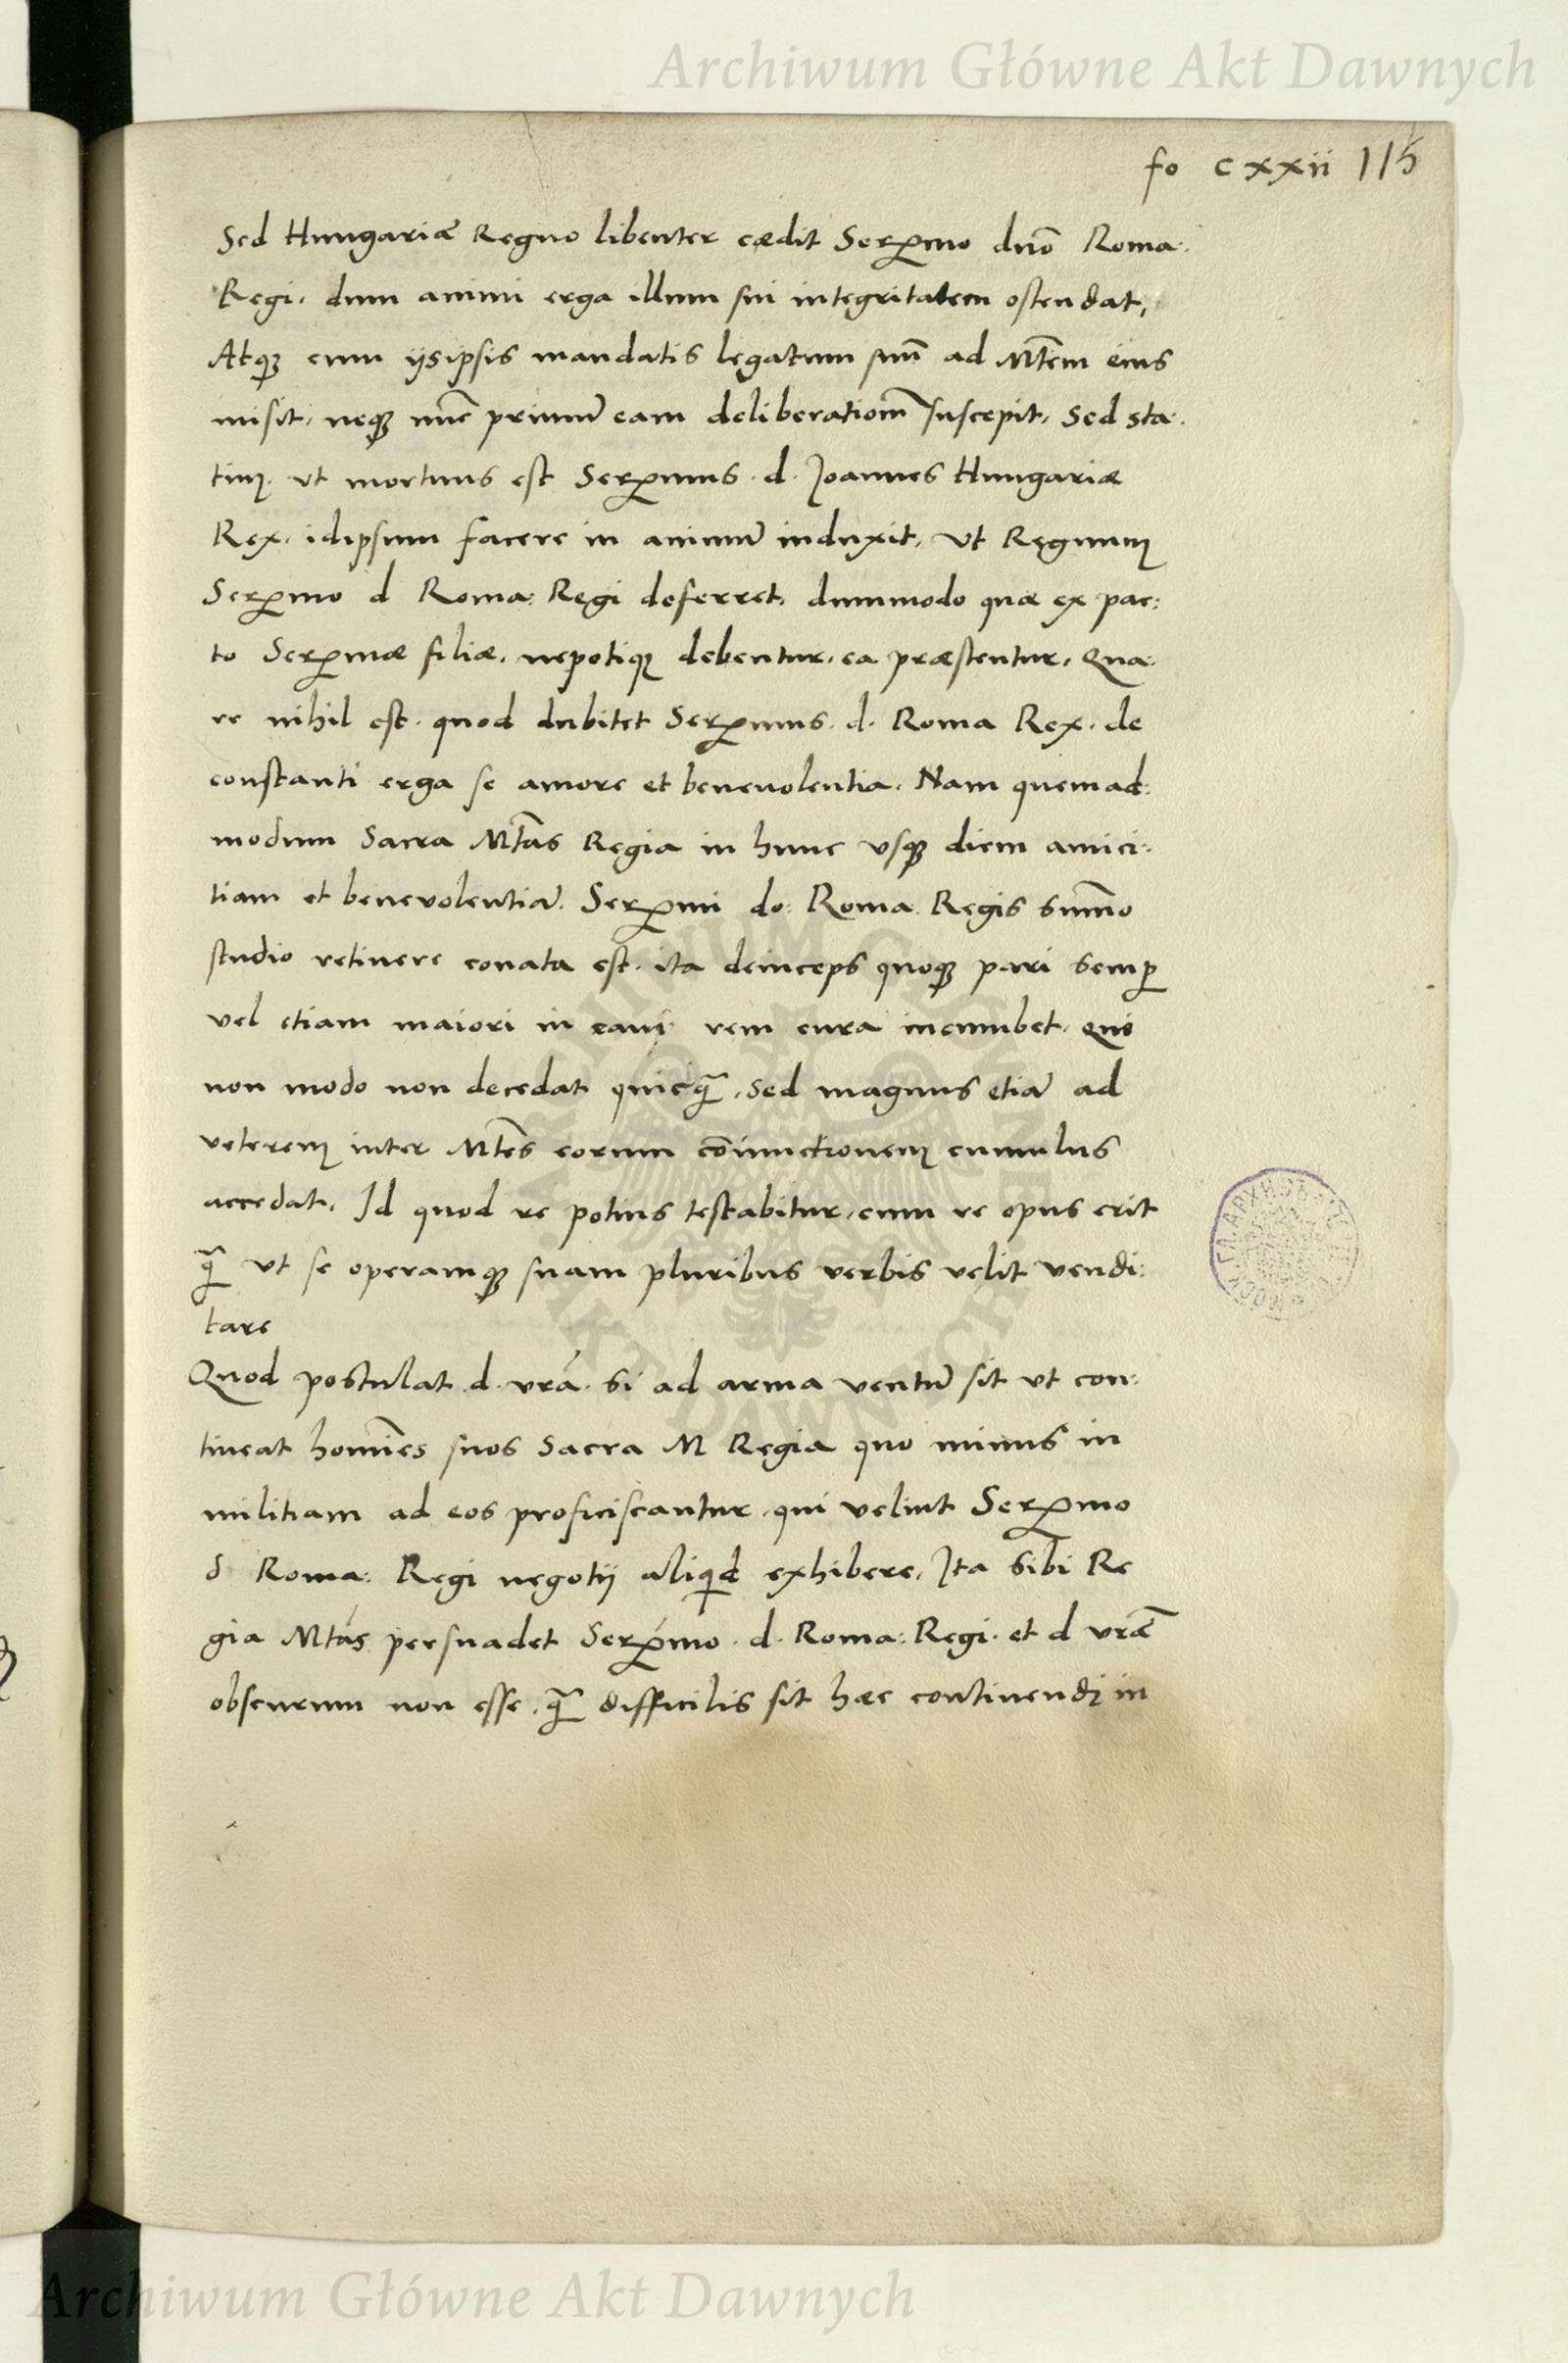 Archiwum Główne Akt Dawnych
fo cxxii 115
Sed Hungariæ Regno libenter cædit Serp̄mo dño Roma:
Regi. dum animi erga illum sui integritatem ostendat,
Atq; cum iisipsis mandatis legatum suũ ad Mtẽm eius
misit, neq; nũc primũ eam deliberatiom̃ suscepit, Sed sta:
tim ut mortuus est Serp̄mus. d. Joannes Hungariæ
Rex. idipsum facere in animũ induxit, ut Regnum
Serp̄mo d Roma: Regi deferret, dummodo quæ ex pac:
to Serp̄mæ filiæ, nepotiq; debentur, ea præstentur, Qua:
re nihil est. quod dubitet Serp̄mus. d. Roma Rex. de
constanti erga se amore et benevolentia. Nam quemad:
modum Sacra Mtãs Regia in hunc usq; diem amici:
tiam et benevolentiã. Serp̄mi do: Roma. Regis sum̃o
studio retinere conata est. ita deinceps quoq; pari semp̱
vel etiam maiori in eam rem cura incumbet. quo
non modo non decedat quicq̃, Sed magnus etiã ad
veterem inter Mtẽs eorum cõiunctionem cumulus
accedat. Id quod re potius testabitur, cum re opus erit
q̃ ut se operamq; suam pluribus verbis velit vendi:
tare
Quod postulat. d. vrã. si ad arma ventũ sit ut con:
tineat homĩes suos Sacra M Regia quo minus in
militiam ad eos proficiscantur. qui velint Serp̄mo
d Roma: Regi negotii aliqid exhibere, Ita sibi Re
gia Mtãs persuadet Serp̄mo. d. Roma: Regi. et d vræ̃
obscurum non esse. q̃ difficilis sit hæc continendi in
Archiwum Główne Akt Dawnych